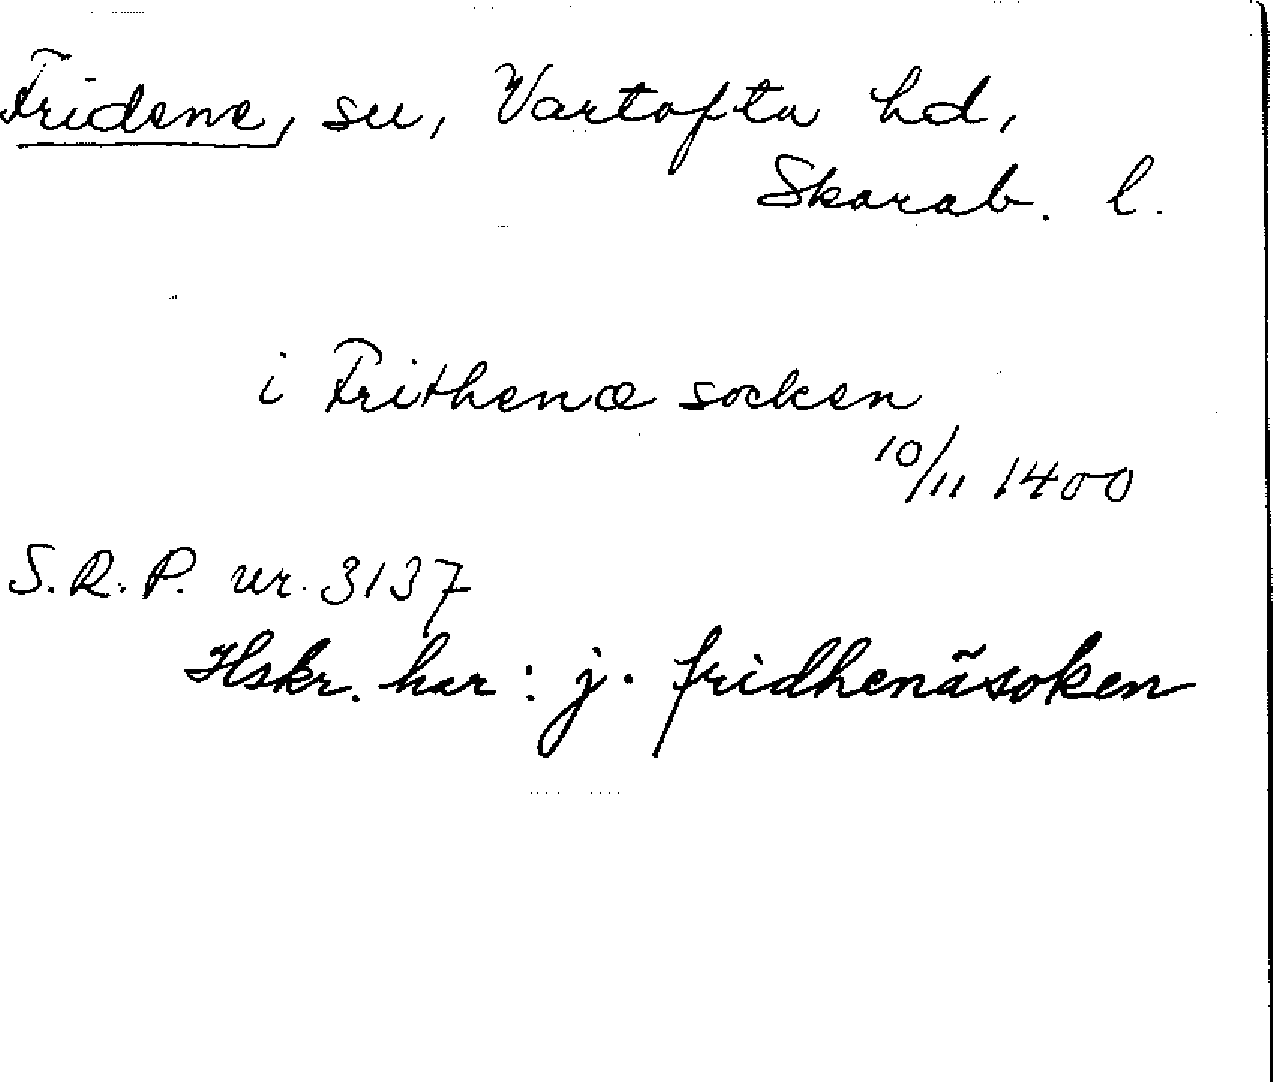 Fridene, sn, Vartofta hd,
Skarab. l.
i Frithenæ socken
10/11 1400
S.R.P. nr. 3137
Hskr. har: j. fridhenäsoken